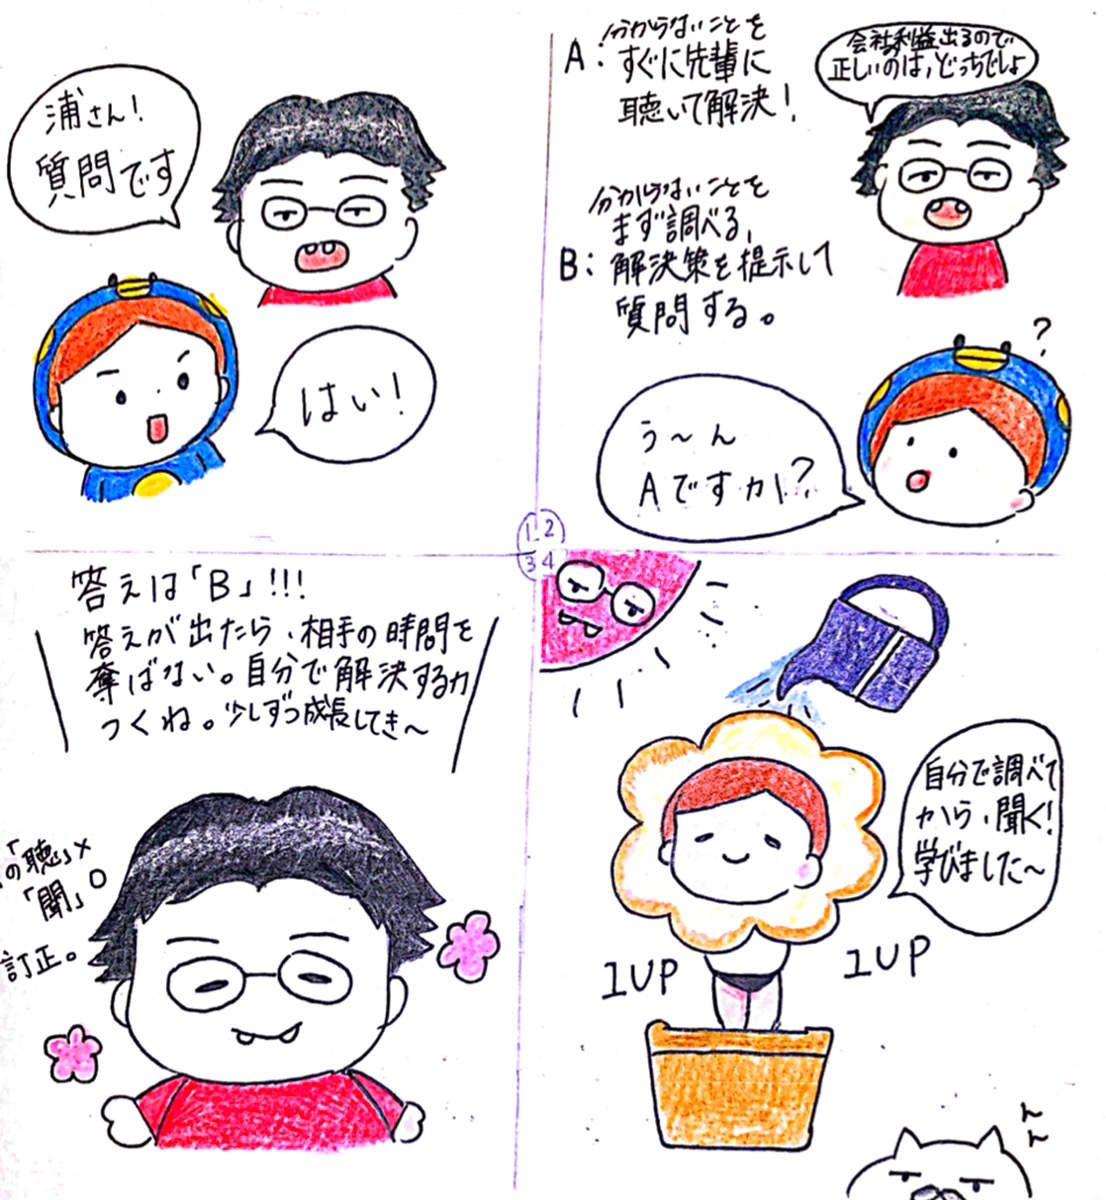 浦さん!
質問です
はい!
A:分からないことを
すぐに先輩に
聴いて解決!
会社利益出るので
正しいのは,どっちでしょ
分からないことを
まず調べる,
B:解決策を提示して
質問する。
?
う〜ん
Aですか?
1 2
3 4
答えは「B」!!!
答えが出たら、相手の時間を
奪ばない。自分で解決する力
つくね。少しずつ成長してき〜
の「聴」×
「聞」○
訂正。
自分で調べて
から、聞く!
学びました〜
1UP
1UP
んん